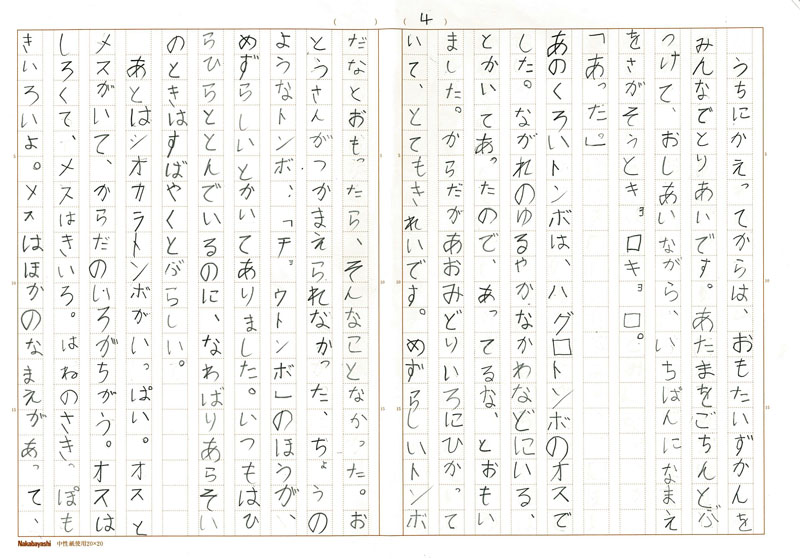 (4)
うちにかえってからは、おもたいずかんを
みんなでとりあいです。あたまをごちんとぶ
つけて、おしあいながら、いちばんになまえ
をさがそうとキョロキョロ。
「あった」
あのくろいトンボは、ハグロトンボのオスで
した。ながれのゆるやかなかわなどにいる、
とかいてあったので、あってるな、とおもい
ました。からだがあおみどりいろにひかって
いて、とてもきれいです。めずらしいトンボ
だなとおもったら、そんなことなかった。お
とうさんがつかまえられなかった、ちょうの
ようなトンボ、「チョウトンボ」のほうが、
めずらしいとかいてありました。いつもはひ
らひらととんでいるのに、なわばりあらそい
のときはすばやくとぶらしい。
あとはシオカラトンボがいっぱい。オスと
メスがいて、からだのいろがちがう。オスは
しろくて、メスはきいろ。はねのさきっぽも
きいろいよ。メスはほかのなまえがあって、
Nakabayashi 中性紙使用20×20